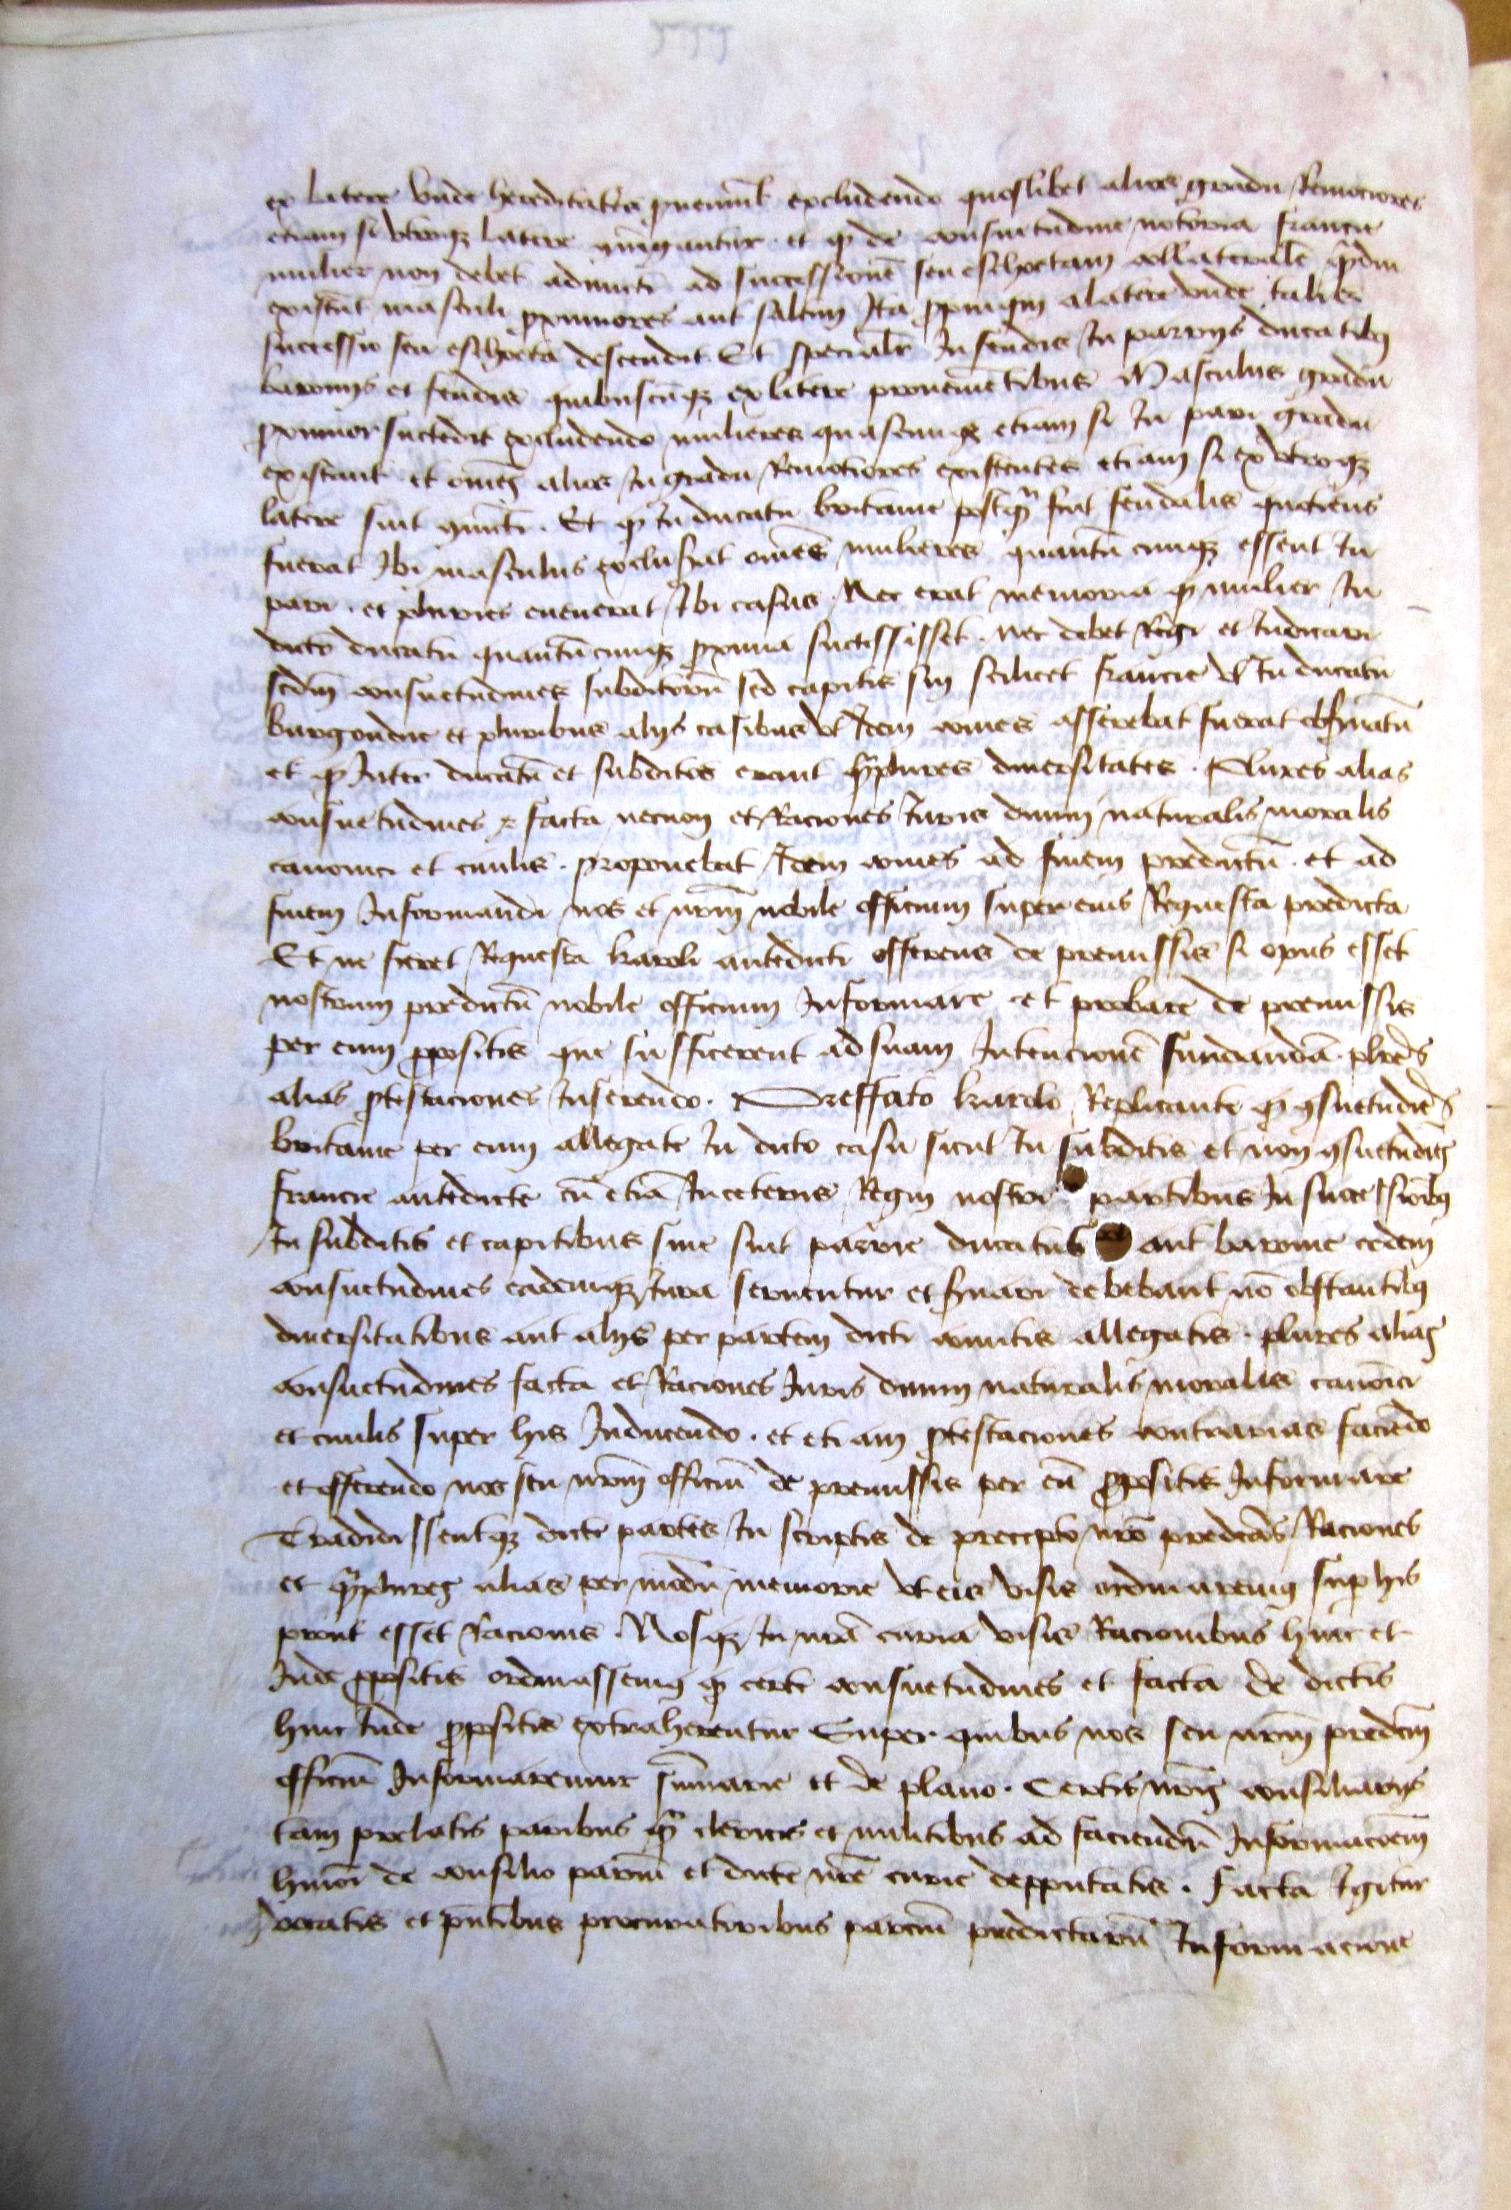 ex latere unde hereditates proveniunt excludendo quoslibet alios gradu Remociores
etiam si utroque latere coniungantur et quod de consuetudine notoria francie
mulier non debet admitti ad successionem seu eschoetam collateralem quamdiu
existunt masculi proximiores aut saltim Ita propinqui a latere unde talis
successio seu eschoeta descendit Et specialiter In feudis In parriis ducatibus
baroniis et feudis quibuscumque ex latere provenientibus Masculus gradu
proximior succedit excludendo mulieres quascumque etiam si In pari gradu
existant et omnes alios In gradu Remotiores existentes etiam si ex utroque
latere sint coniuncti . Et quod In ducatu britanie postquam fuit feudalis quociens
fuerat Ibi masculus excluserat omnes mulieres quantumcumque essent In
pari . et pluries evenerat Ibi casus . Nec erat memoria quod mulier In
dicto ducatu quantumcumque proxima successisset . Nec debet Regi et Iudicari
secundum consuetudines subditorum sed capitis sui scilicet francie ut In ducatu
burgondie et pluribus aliis casibus ut Idem comes asserebat fuerat observatum
et quod Inter ducatum et subditos erant quamplures diversitates . Plures alias
consuetudines et facta necnon et Raciones Iuris divini naturalis moralis
canonici et civilis . proponebat Idem comes ad finem predictum . et ad
finem Informandi nos et nostrum nobile officium super eius Requesta predicta
Et ne fieret Requesta karoli antedicti offerens de premissis si opus esset
nostrum predictum nobile officium Informare et probare de premissis
per eum propositis que sufficerent ad suam Intencionem fundandam . plures
alias protestaciones Inserendo . Preffato karolo Replicante quod consuetudines
britanie per eum allegate In dicto casu sicut In subditis et non consuetudines
francie antedicte cum etiam In ceteris Regni nostri partibus In successionibus
In subditis et capitibus sive sint parrie ducatus aut baronie eedem
consuetudines eademque Iura serventur et servari debebant non obstantibus
diversitatibus aut aliis per partem dicti comitis allegatis . plures alias
consuetudines facta et Raciones Iuris divini naturalis moralis canonici
et civilis super his Inducendo . et etiam protestaciones contrarias faciendo
et offerendo nos seu nostrum officium de premissis per eum propositis Informare
Tradidissentque dicte partes In scriptis de precepto nostro predictas Raciones
et quamplures alias per modum memorie ut eis visis ordinaremus super his
prout esset Racionis . Nosque In nostra curia visis Racionibus hinc et
Inde propositis ordinassemus quod certe consuetudines et facta de dictis
hinc Inde propositis extraherentur Super quibus nos seu nostrum predictum
officium Informaremur summarie et de plano . Certis nostris consiliariis
tam prelatis paribus quam clericis et militibus ad faciendum Informacionem
huiusmodi de consilio parium et dicte nostre curie depputatis . Facta Igitur
vocatis et presentibus procuratoribus parcium predictarum Informacione